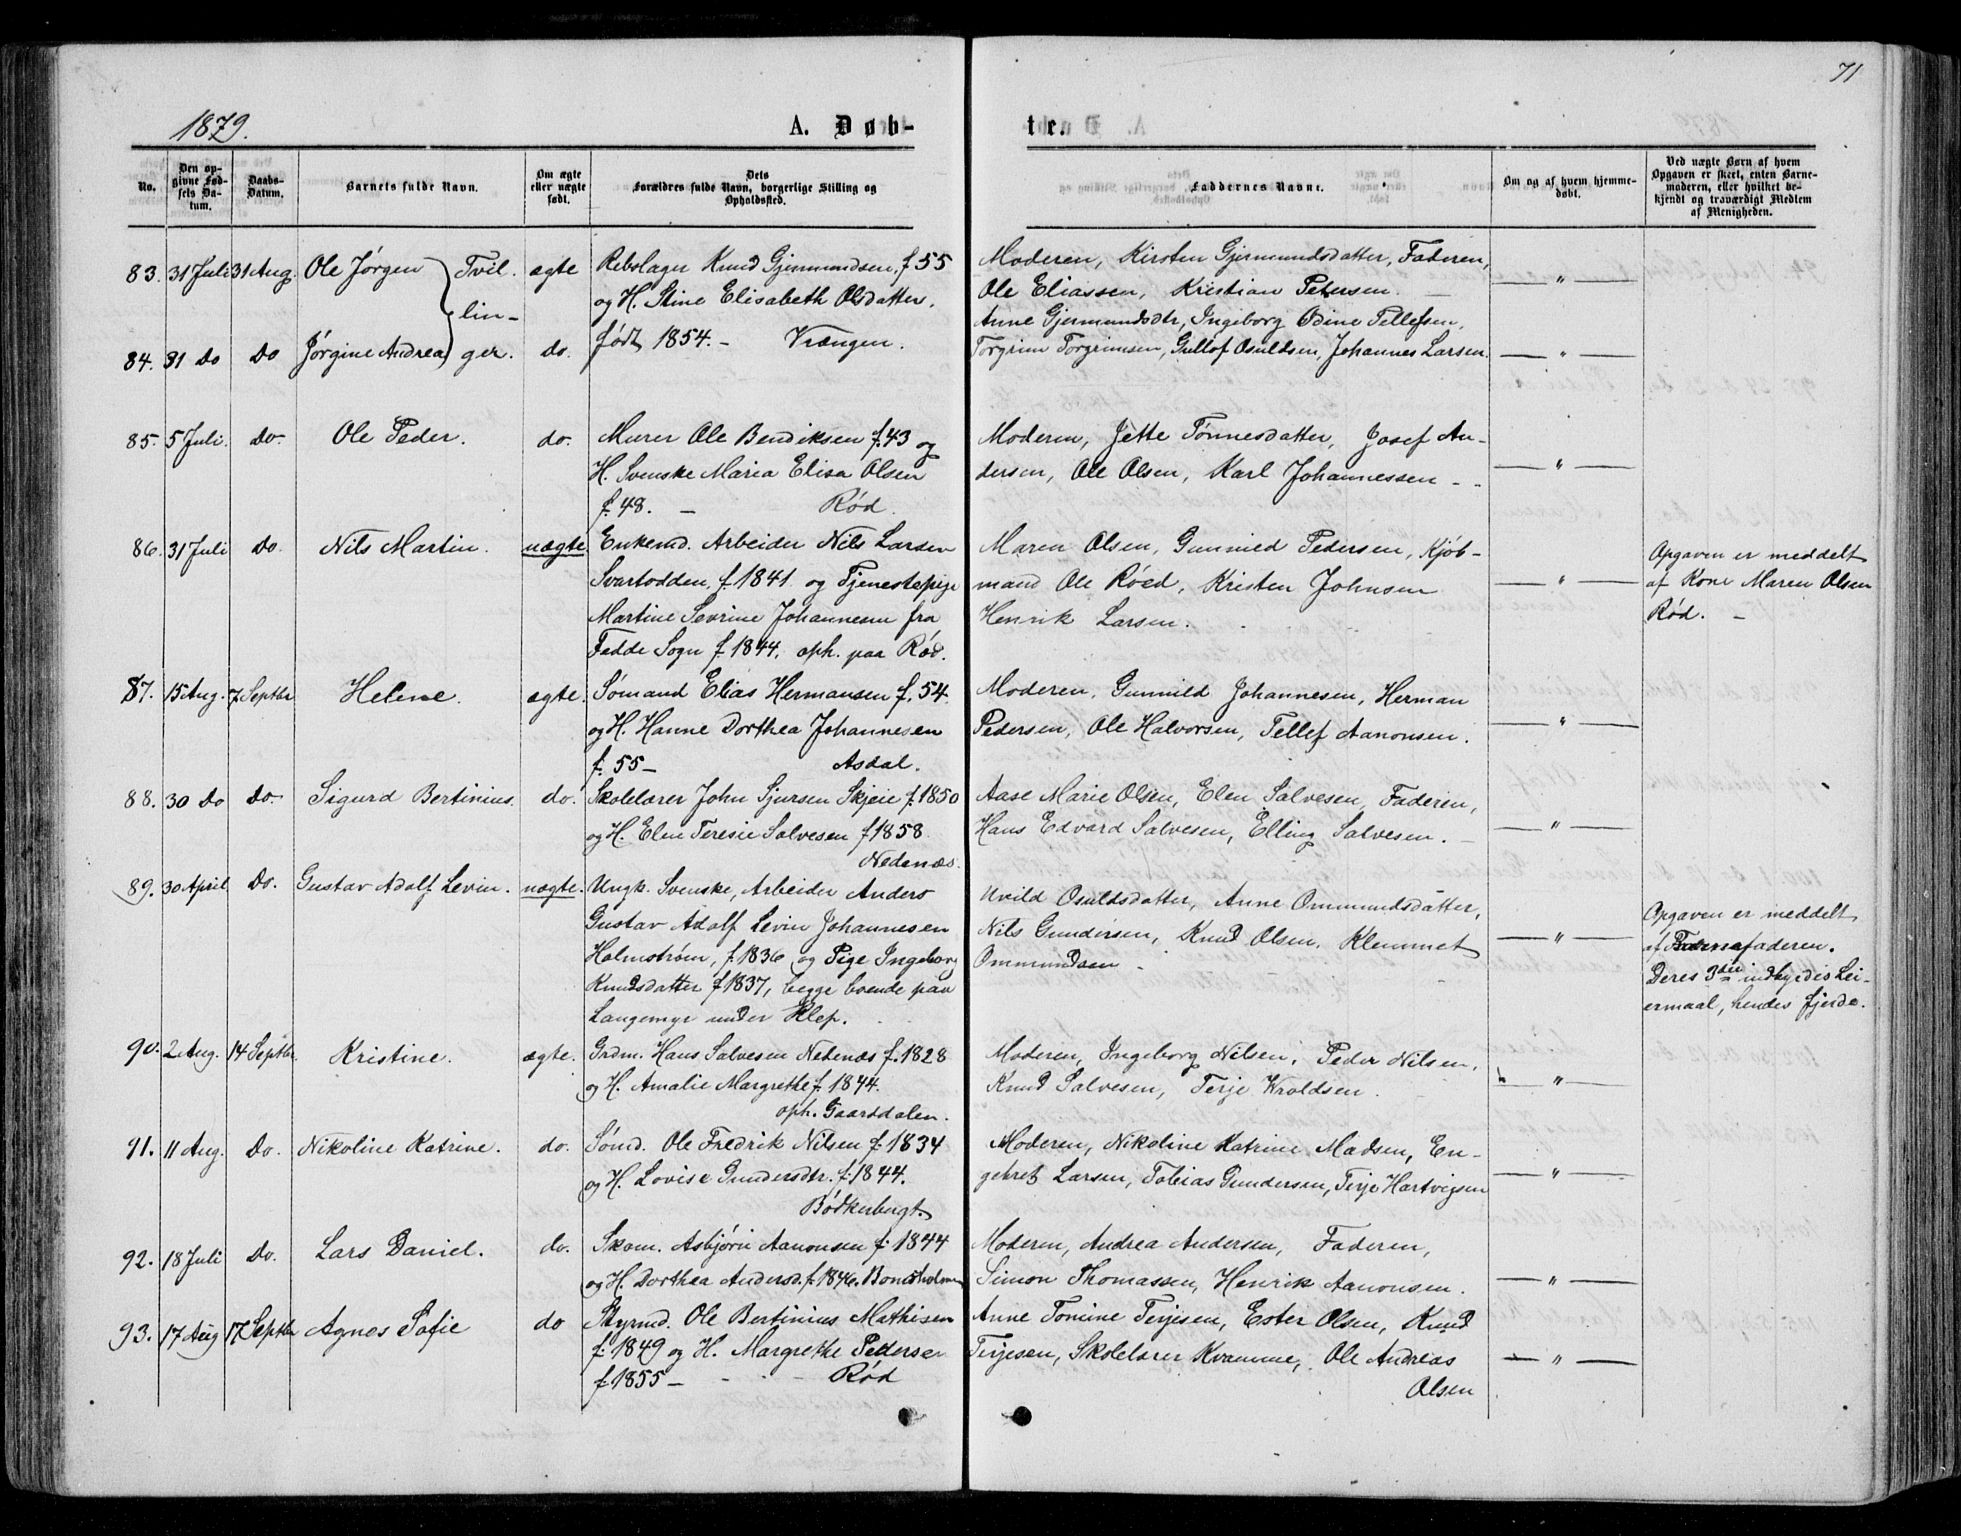 71
1879.
A. Døb-
te.
No.
Den op-
givne Fød-
sels Da-
tum.
Daabs-
Datum.
Barnets fulde Navn.
Om ægte
eller uægte
født.
Dets
Forældres fulde Navn, borgerlige Stilling og
Opholdssted.
Faddernes Navne.
Om og af hvem hjemme-
døbt.
Ved uægte Børn af hvem
Opgaven er skeet, enten Barne-
moderen, eller hvilket be-
kjendt og troværdigt Medlem
af Menigheden.
83. 31 Juli 31 Aug. Ole Jørgen Tvil- ægte Rebslager Knud Gjermundsen, f 55 Moderen, Kirsten Gjermundsdatter, Faderen,
og H. Stine Elisabeth Olsdatter, Ole Eliassen, Kristian Petersen. — " —
lin- Anne Gjermundsdtr, Ingeborg Odine Tellefsen,
84. 31 Do Do Jørgine Andrea ger. do. født 1854. - Vrængen. Torgrim Torgrimsen, Gullof Osuldsen, Johannes Larsen. — " —
85. 5 Juli. do. Ole Peder. do. Murer Ole Bendiksen f. 43 og Moderen, Jette Tønnesdatter, Josef An-
H. Svenske Maria Elisa Olsen dersen, Ole Olsen, Karl Johannessen - - — " —
f. 48. - Rød.
86. 31 Juli do. Nils Martin. uægte Enkemd. Arbeider Nils Larsen Maren Olsen, Gunnild Pedersen, Kjøb- Opgaven er meddelt
Svartodden, f. 1841. og Tjenestepige mand Ole Røed, Kristen Johnsen — " — af Kone Maren Olsen
Martine Sevrine Johannesen fra Henrik Larsen. Rød. -
Fedde Sogn f. 1844. oph. paa Rød.
87. 15 Aug. 7 Septbr Helene. ægte. Sømand Elias Hermansen f. 54. Moderen, Gunnild Johannesen, Herman
og H. Hanne Dorthea Johannesen Pedersen, Ole Halvorsen, Tellef Aanonsen. — " —
f. 55 - Asdal.
88. 30 Do Do. Sigurd Bertinius. do. Skolelærer John Sjursen Skjeie f. 1850 Aase Marie Olsen, Elen Salvesen, Faderen,
og H. Elen Teresie Salvesen f 1858. Hans Edvard Salvesen, Elling Salvesen. - — " —
Nedenæs.
89. 30 April Do. Gustav Adolf Levin. uægte. Ungk. Svenske, Arbeider Anders Uvild Osuldsdatter, Anne Ommundsdatter, Opgaven er meddelt
Gustav Adolf Levin Johannesen Nils Gundersen, Knud Olsen, Klemmet — " — af faderen.
Holmstrøm, f. 1836 og Pige Ingeborg Ommundsen - Deres 3die indbyrdes Lei-
Knudsdatter f 1837, begge boende paa ermaal, hendes fjerde.
Langemyr under Klep.
90. 2 Aug. 14 Septbr. Kristine. ægte. Grdm. Hans Salvesen Nedenæs f. 1828 Moderen, Ingeborg Nilsen, Peder Nilsen,
og H. Amalie Margrethe f. 1844. Knud Salvesen, Terje Wroldsen. — " —
oph. Gaarsdalen.
91. 11 Aug. Do. Nikoline Katrine. do. Sømd. Ole Fredrik Nilsen f. 1834 Moderen, Nikoline Katrine Madsen, En-
og H. Lovise Gundersdtr. f. 1844. gebret Larsen, Tobias Gundersen, Terje Hartvigsen — " —
Bødkerbugt.
92. 18 Juli Do. Lars Daniel. do. Skom. Asbjørn Aanonsen f. 1844 Moderen, Andrea Andersen, Faderen,
og H. Dorthea Andersd. f. 1846. Simon Thomassen, Henrik Aanonsen. — " —
93. 17 Aug 17 Septbr Agnes Sofie do Styrmd. Ole Bertinius Mathisen Anne Tomine Terjesen, Ester Olsen, Knud
f. 1849 og H. Margrethe Pedersen Terjesen, Skolelærer Kvamme, Ole Andreas — " —
f. 1855 - Rød Olsen